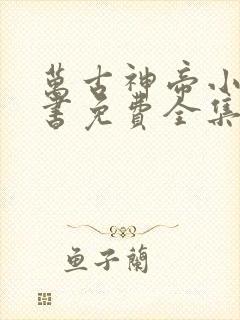 萬古神帝小
書免費全集
魚子蘭